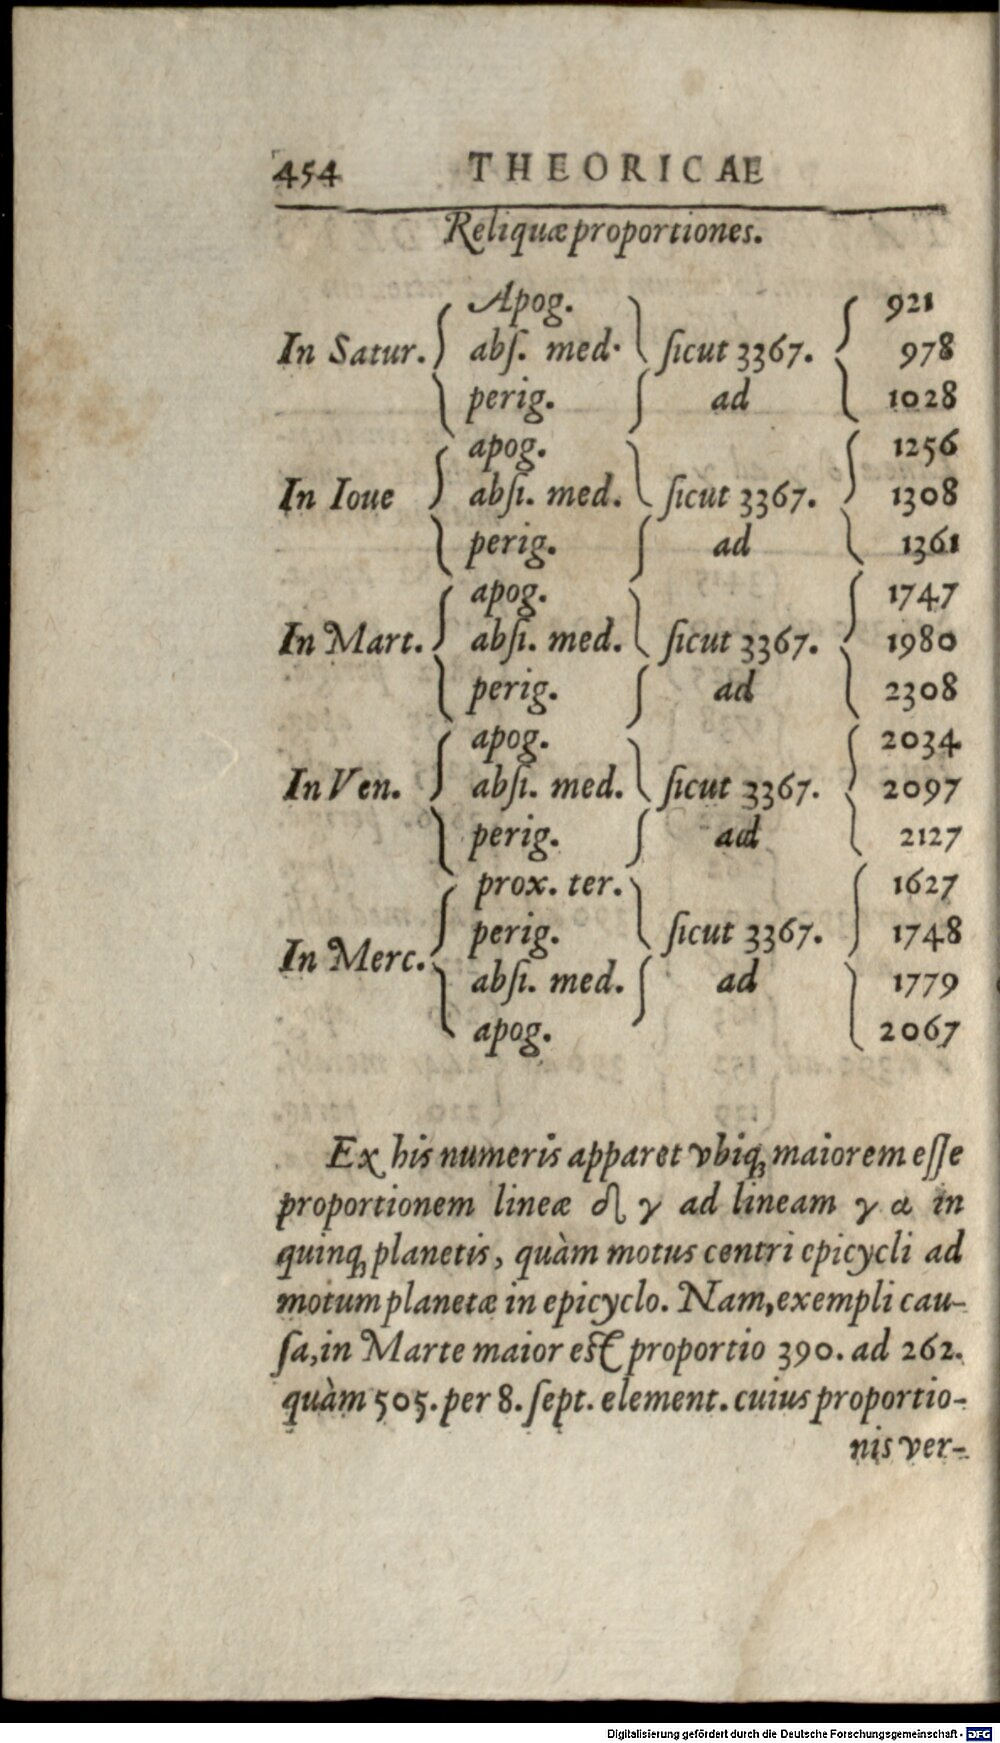 454 THEORICAE
Reliquæ proportiones.
Apog. 921
In Satur. abſ. med. ſicut 3367. 978
perig. ad 1028
apog. 1256
In Ioue abſi. med. ſicut 3367. 1308
perig. ad 1361
apog. 1747
In Mart. abſi. med. ſicut 3367. 1980
perig. ad 2308
apog. 2034
In Ven. abſi. med. ſicut 3367. 2097
perig. ad 2127
prox. ter. 1627
perig. ſicut 3367. 1748
In Merc. abſi. med. ad 1779
apog. 2067
Ex his numeris apparet vbiq; maiorem eſſe
proportionem lineæ δ γ ad lineam γ α in
quinq; planetis, quàm motus centri epicycli ad
motum planetæ in epicyclo. Nam, exempli cau-
ſa, in Marte maior eſt proportio 390. ad 262.
quàm 505. per 8. ſept. element. cuius proportio-
nis ver-
Digitalisierung gefördert durch die Deutsche Forschungsgemeinschaft - DFG